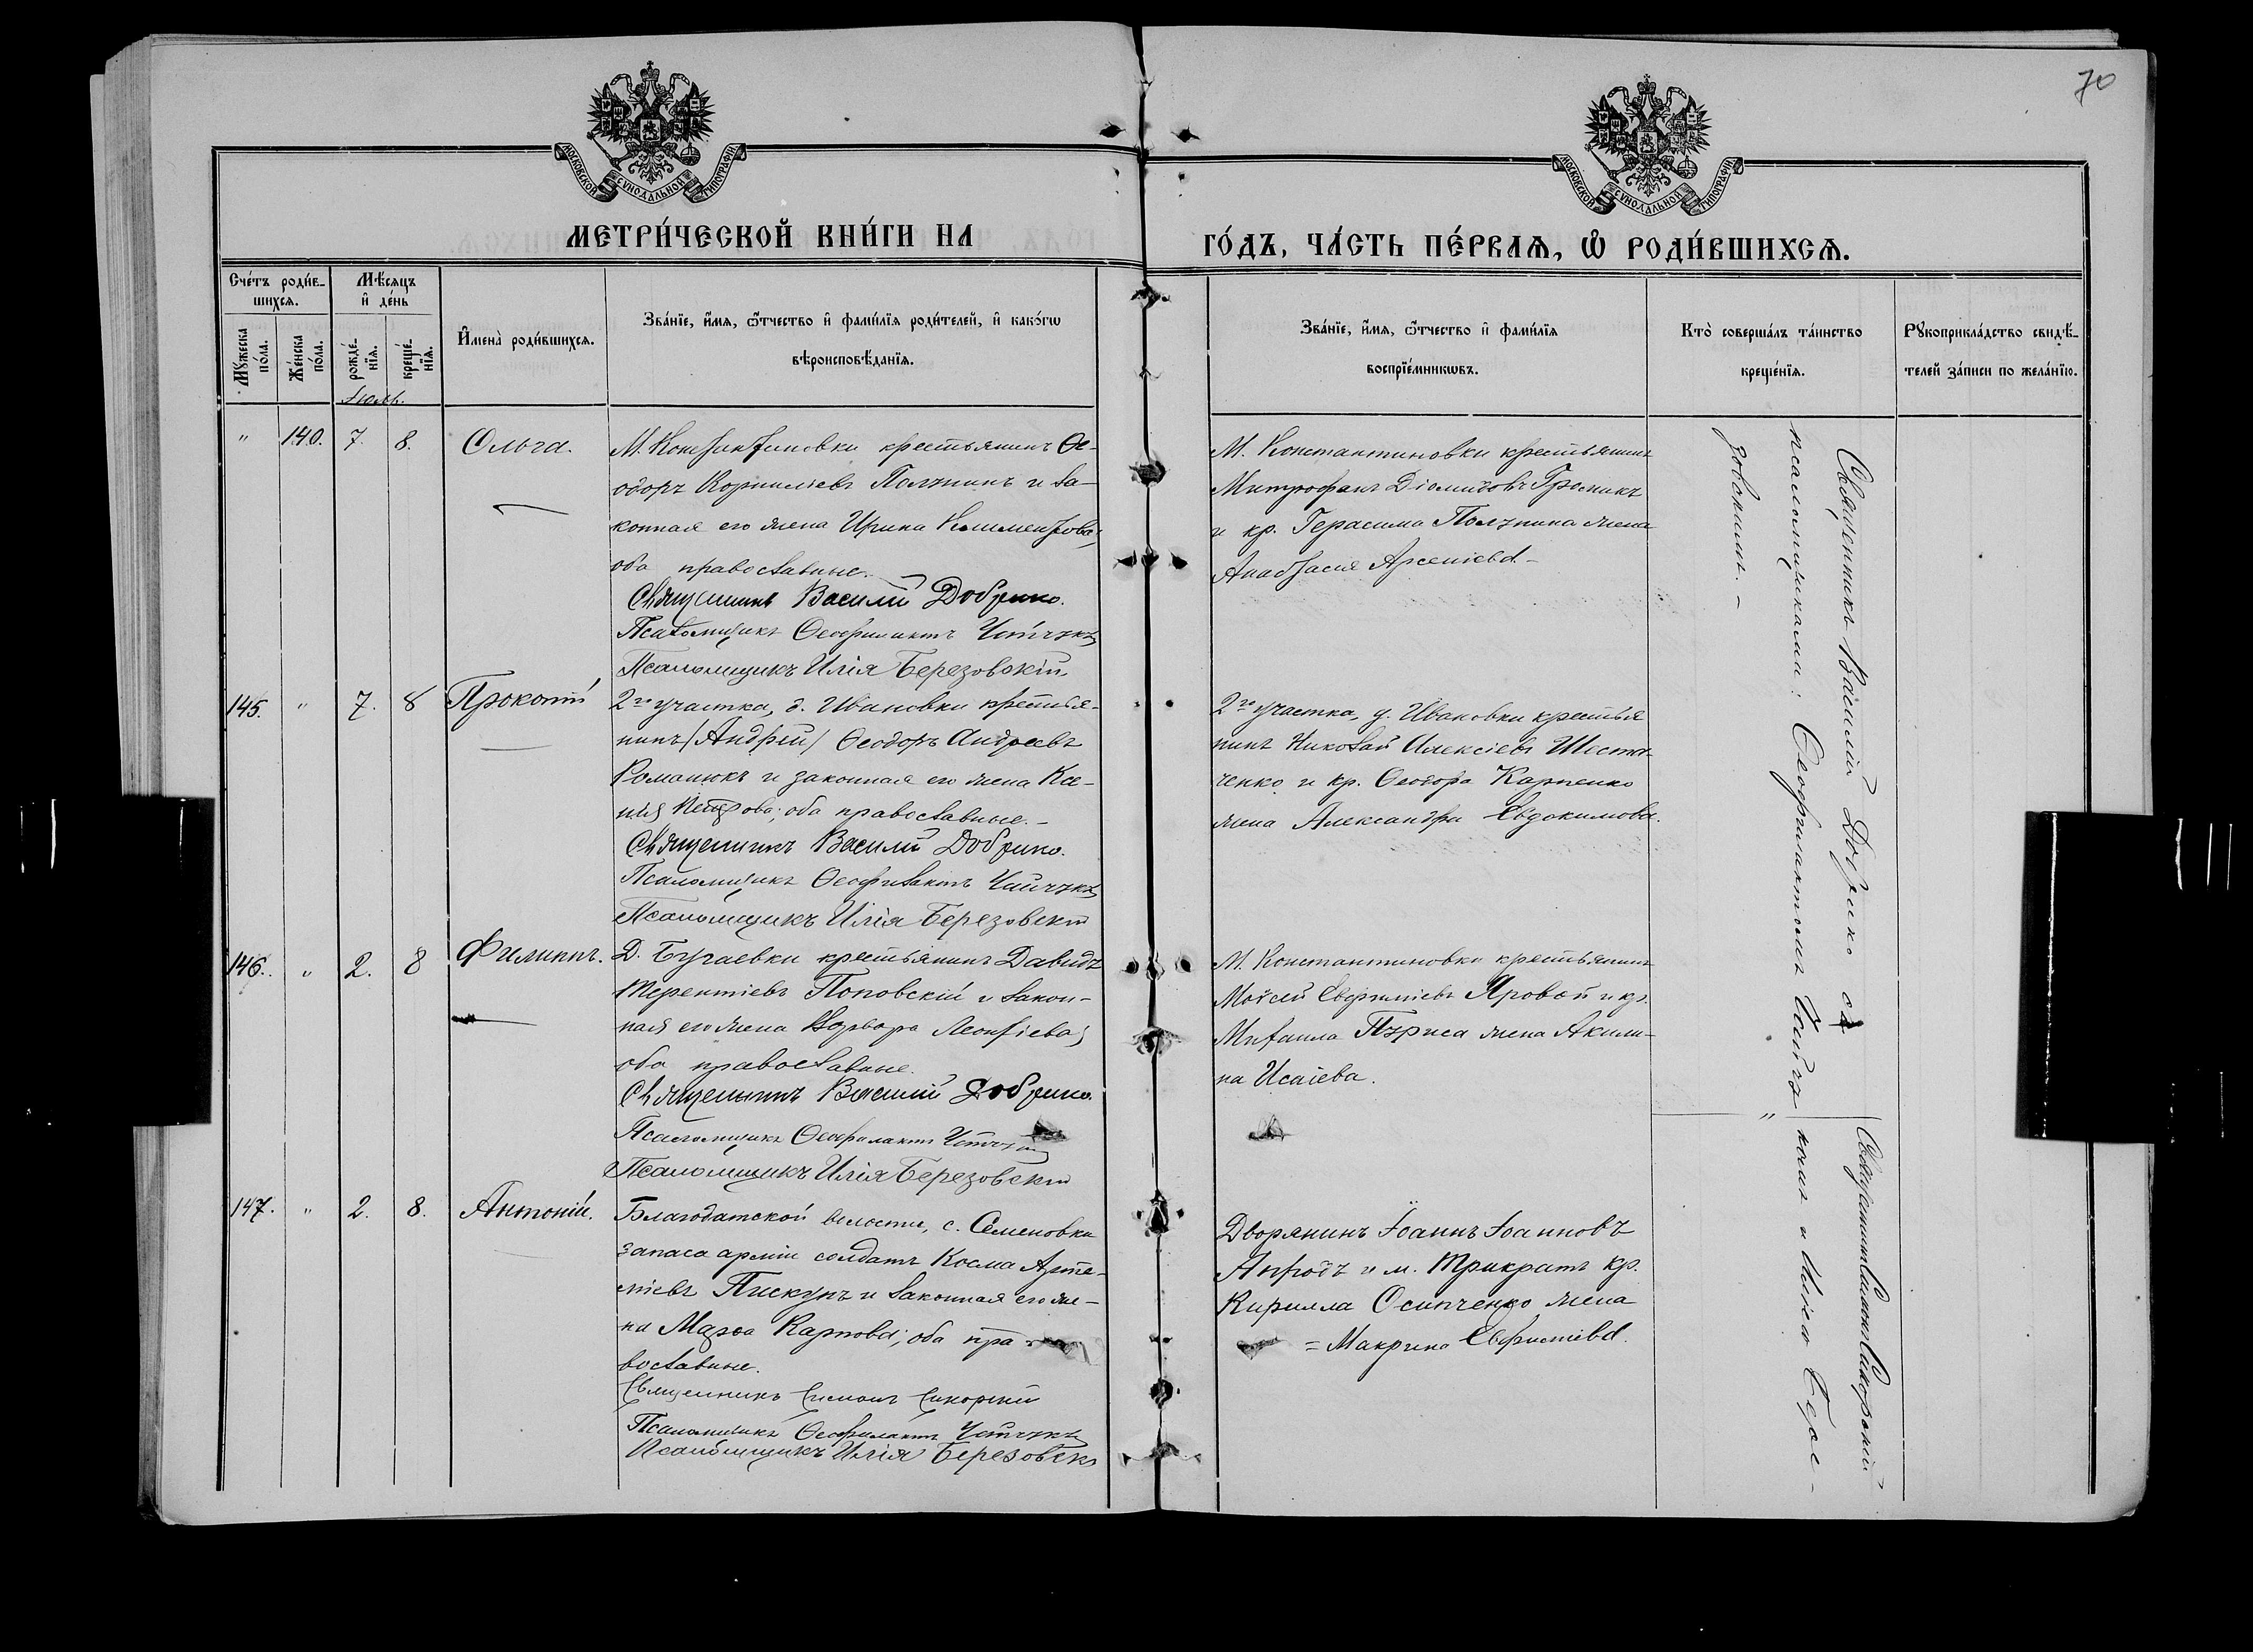 70
МОСКОВСКОЙ СѴНОДАЛЬНОЙ ТИПОГРАФІИ
МОСКОВСКОЙ СѴНОДАЛЬНОЙ ТИПОГРАФІИ
МЕТРИ́ЧЕСКОЙ КНИ́ГИ НА
ГО́ДЪ, ЧА́СТЬ ПЕ́РВАѦ, Ѽ РОДИ́ВШИХСѦ.
Сче́тъ роди́в-
шихсѧ.
Мꙋжеска
по́ла.
Же́нска
по́ла.
Мѣ́сѧцъ
и҆ де́нь
рожде́-
нїѧ.
креще́-
нїѧ.
И҆мена̀ роди́вшихсѧ.
Зва́нїе, и҆́мѧ, ѻ҆́тчество и҆ фами́лїѧ роди́телей, и҆ како́гѡ
вѣроисповѣ́данїѧ.
Зва́нїе, и҆́мѧ, ѻ҆́тчество и҆ фами́лїѧ
воспрїе́мникѡвъ.
Кто̀ соверша́лъ та́инство
креще́нїѧ.
Рꙋкоприкла́дство свидѣ́-
телей за́писи по жела́нїю.
Іюль.
" 140. 7. 8. Ольга.
М. Константиновки крестьянинъ Ѳе-
одоръ Корниліевъ Ползунъ и за-
конная его жена Ирина Климентова,
оба православные.
Священникъ Василій Добрико.
Псаломщикъ Ѳеофилактъ
Псаломщикъ Илія Березовскій
М. Константиновки крестьянинъ
Митрофанъ Діомидовъ Громикъ
и кр. Герасима жена
Анастасія Арсеніева.
145. " 7. 8 Прокопій
2го участка, д. Ивановки крестья-
нинъ (Андрей) Ѳеодоръ Андреевъ
Романюкъ и законная его жена Ксе-
нія Петрова; оба православные.
Священникъ Василій Добрико.
Псаломщикъ Ѳеофилактъ
Псаломщикъ Илія Березовскій
2го участка, д. Ивановки крестья
нинъ Николай Алексіевъ Шеста-
ченко и кр. Ѳеодора Карпенко
жена Александра Евдокимова.
146. " 2. 8 Филиппъ.
Д. Бугаевки крестьянинъ Давидъ
Терентіевъ Поповскій и закон-
ная его жена Варвара Леонтіева;
оба православные.
Священникъ Василій Добрико.
Псаломщикъ Ѳеофилактъ
Псаломщикъ Илія Березовскій
М. Константиновки крестьянинъ
Моѵсей Евфиміевъ Яровой и кр.
Михаила жена Акили-
на Исаіева.
147. " 2. 8. Антоній.
Благодатской волости, с. Семеновки
запаса арміи солдатъ Косма Арте-
міевъ Пискунъ и законная его же-
на Марѳа Карпова; оба пра-
вославные.
Священникъ Симонъ Сикорскій
Псаломщикъ Ѳеофилактъ
Псаломщикъ Илія Березовскі
Дворянинъ Іоаннъ Іоанновъ
и м. Трикратъ кр.
Кирилла Осипченко жена
= Макрина Евфиміева.
Священникъ Василій Добрико съ
псаломщиками: Ѳеофилактомъ
зовскимъ. –
Священникъ Симонъ Сикорскій
" комъ и Иліею Бере-